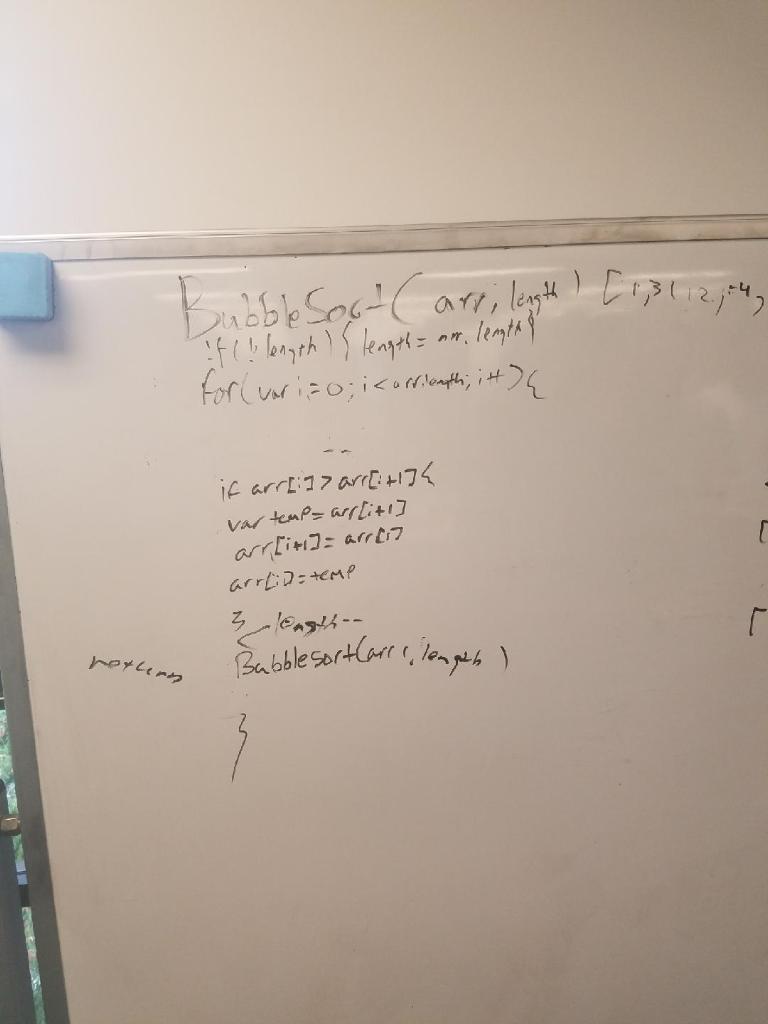 BubbleSort( arr, length ) [1,3,12,-4,
if(!length){ length = arr.length}
for(var i=0; i<arr.length; i++){
--
if arr[i]>arr[i+1]{
var temp=arr[i+1]
arr[i+1]=arr[i]
arr[i]=temp
} length--
Bubblesort(arr, length)
}
[
[